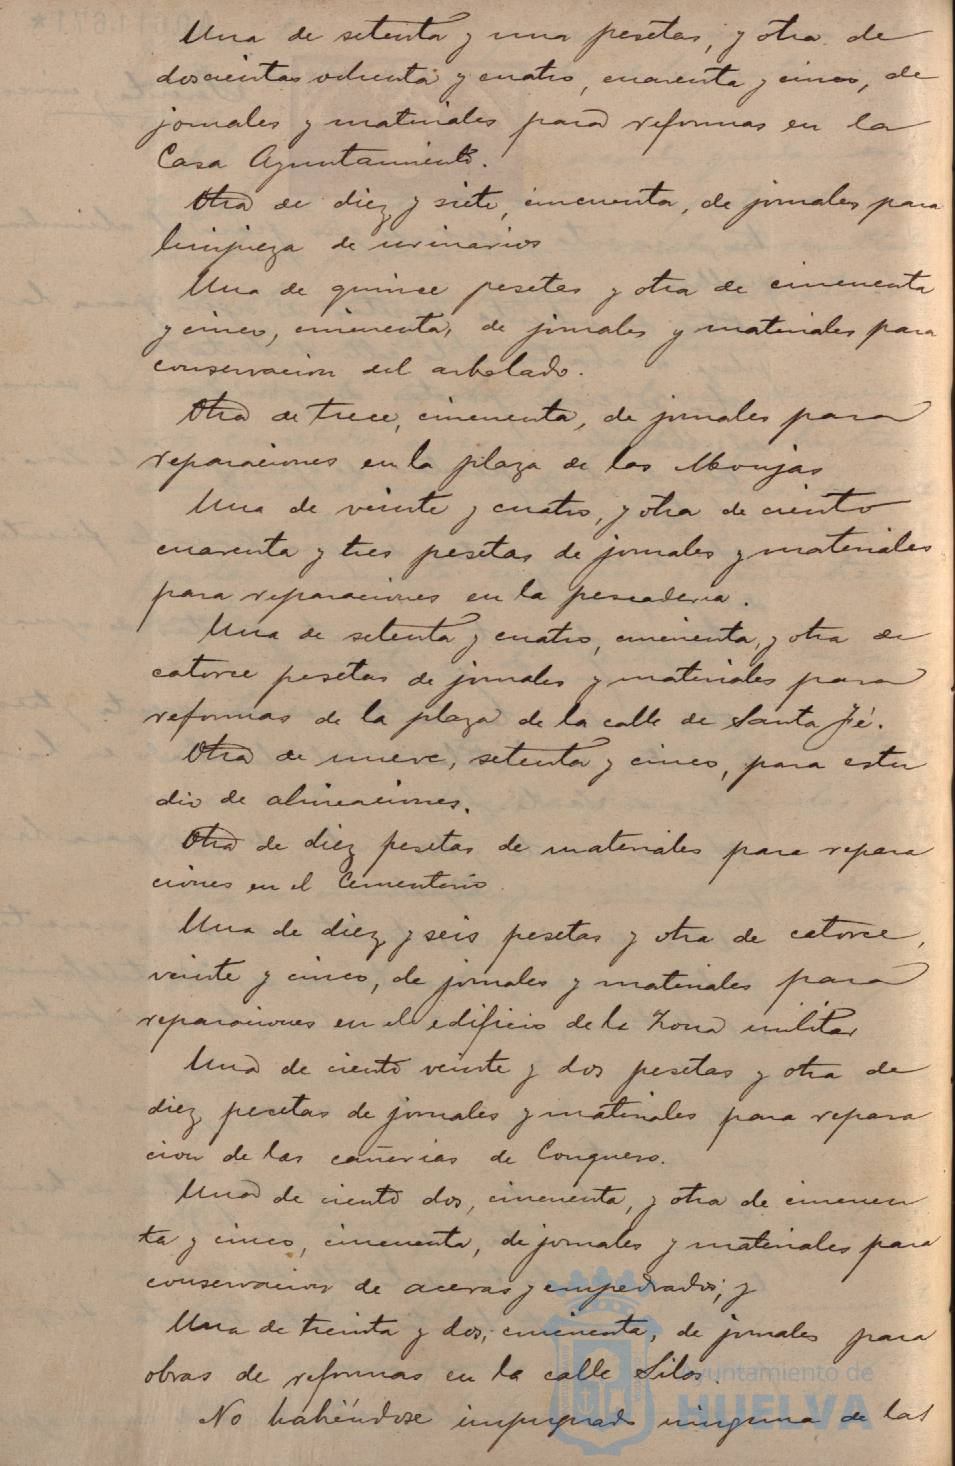 Una de setenta y una pesetas, y otra de
doscientas ochenta y cuatro, cuarenta y cinco, de
jornales y materiales para reformas en la
Casa Ayuntamiento.
Otra de diez y siete, cincuenta, de jornales para
limpieza de urinarios
Una de quince pesetas y otra de cincuenta
y cinco, cincuenta, de jornales y materiales para
conservacion del arbolado.
Otra de trece, cincuenta, de jornales para
reparaciones en la plaza de las Monjas
Una de veinte y cuatro, y otra de ciento
cuarenta y tres pesetas de jornales y materiales
para reparaciones en la pescaderia.
Una de setenta y cuatro, cincuenta, y otra de
catorce pesetas de jornales y materiales para
reformas de la plaza de la calle de Santa Fé.
Otra de nueve, setenta y cinco, para estu
dio de alineaciones.
Otra de diez pesetas de materiales para repara
ciones en el Cementerio
Una de diez y seis pesetas y otra de catorce,
veinte y cinco, de jornales y materiales para
reparaciones en el edificio de la Zona militar
Una de ciento veinte y dos pesetas y otra de
diez pesetas de jornales y materiales para repara
cion de las cañerias de Conquero.
Una de ciento dos, cincuenta, y otra de cincuen
ta y cinco, cincuenta, de jornales y materiales para
conservacion de aceras y empedrados; y
Una de treinta y dos, cincuenta, de jornales para
obras de reformas en la calle Silos.
Ayuntamiento de
HUELVA
No habiéndose impugnado ninguna de las